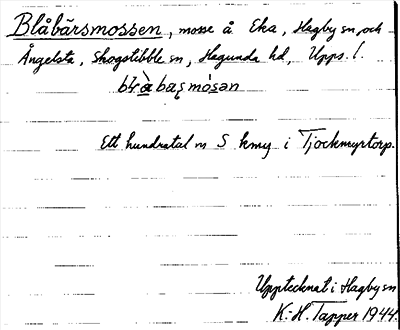 Blåbärsmossen, mosse å Eka, Hagby sn, och
Ångelsta, Skogstibble sn, Hagunda hd, Upps. l.
Ett hundratal m S kmg i Tjockmyrtorp.
Upptecknat i Hagby sn
K.-H. Tapper 1944.